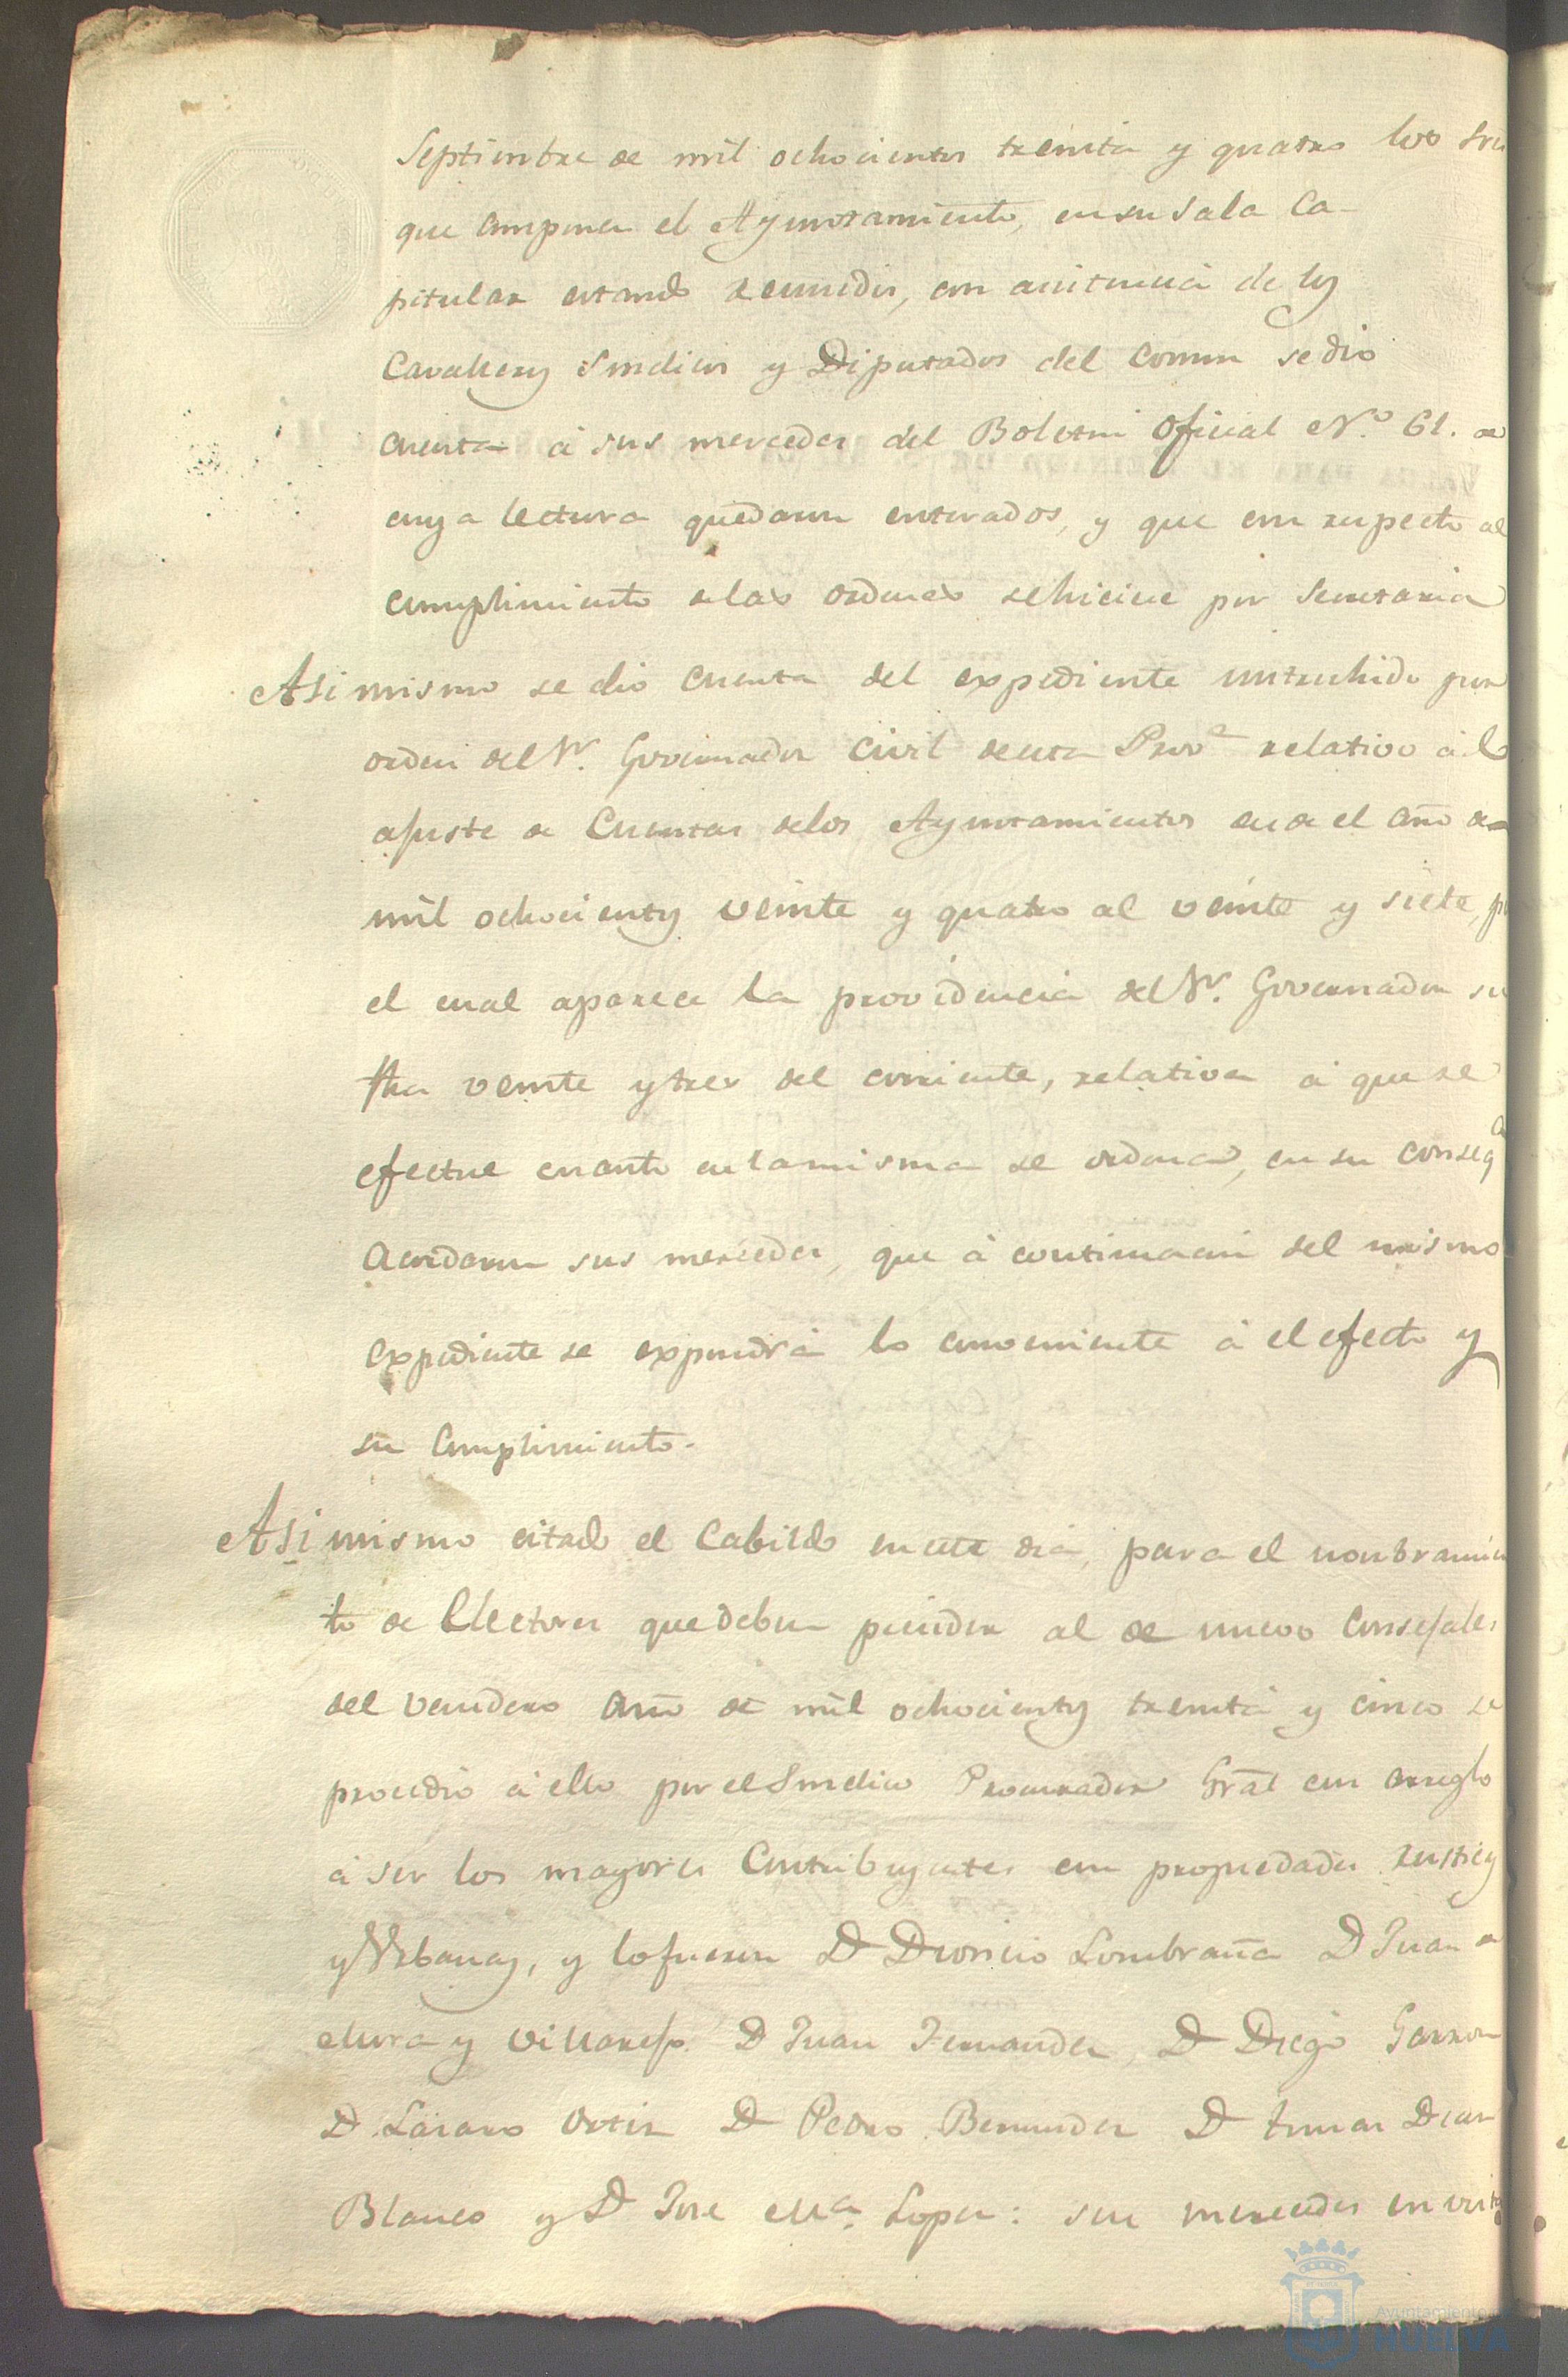 Septiembre de mil ochocientos treinta y quatro los Sres
que componen el Ayuntamiento, en su Sala Ca-
pitular estando reunidos, con asistencia de los
Cavalleros Sindicos y Diputados del Comun se dio
cuenta á sus mercedes del Boletin Oficial N.º 61. de
cuya lectura quedaron enterados, y que con respecto al
cumplimiento de las ordenes se hiciese por Secretaria
Asi mismo se dio cuenta del expediente instruhido por
orden del Sr. Governador Civil de esta Prov.ª relativo á el
ajuste de Cuentas de los Ayuntamientos desde el año de
mil ochocientos veinte y quatro al veinte y siete, p
el cual aparece la providencia del Sr. Governador su
fha veinte y tres del corriente, relativa á que se
efectue cuanto en la misma se ordena, en su conseq.ª
Acordaron sus mercedes, que á continuacion del mismo
expediente se expondrá lo combeniente á el efecto y
su Cumplimiento.
Asi mismo citado el Cabildo en este dia, para el nonbramien
to de Electores que deben preceder al de nuevo Consejales
del venidero año de mil ochocientos treinta y cinco se
procedio á ello por el Sindico Procurador Gral con arreglo
á ser los mayores Contribuyentes en propiedades rusticas
y Urbanas, y lo fueron D Dionicio Lombraña D Juan de
Mora y Villarejo. D Juan Fernandez, D Diego Garzon
D Lázaro Ortiz D Pedro Bermudez D Tomas Diaz
Blanco y D Jose Mª. Lopez: sus mercedes en vista
Ayuntamiento
HUELVA